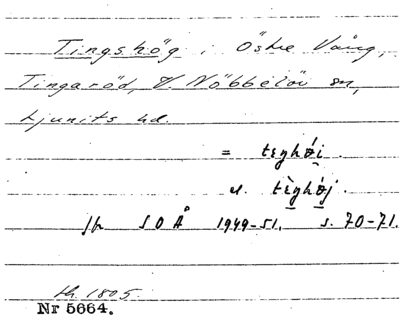 Tingshög i Östra Vång,
Tingaröd, V. Nöbbelöv sn,
Ljunits hd.
= teŋhǿi̯.
el. tèŋhǿj.
jfr SOÅ 1949-51. s. 70-71.
1805.
Nr 5664.